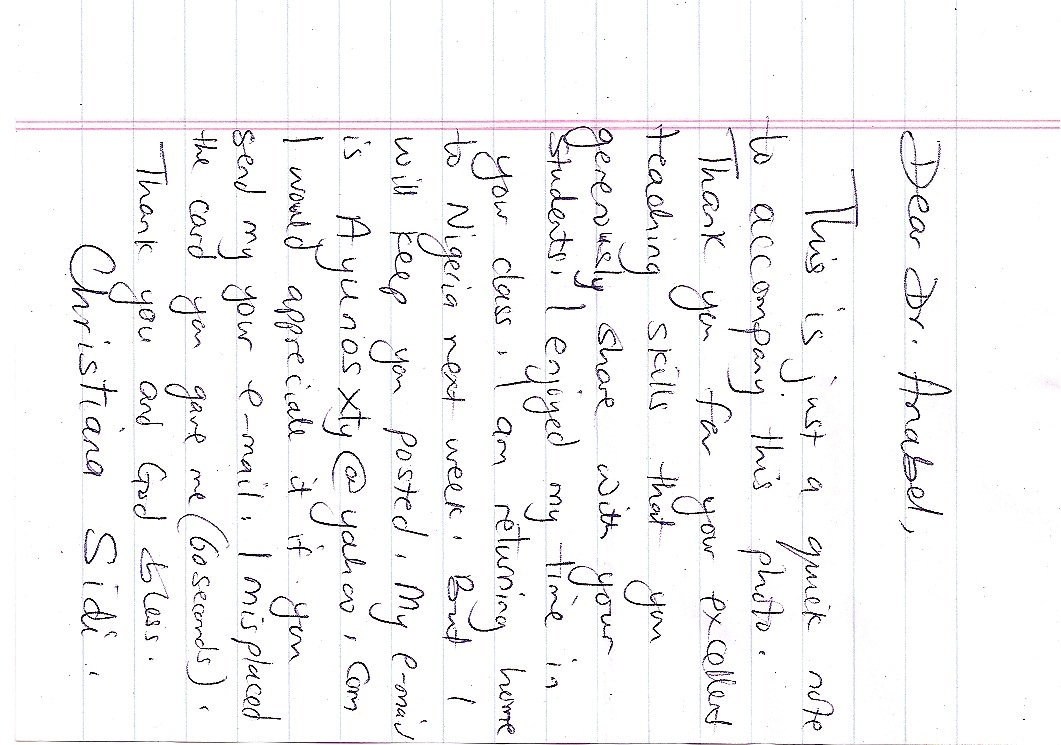 Dear Dr. Anabel,
This is just a quick note
to accompany this photo.
Thank you for your excellent
teaching skills that you
generously share with your
students. I enjoyed my time in
your class. I am returning home
to Nigeria next week. But I
will keep you posted. My e-mail
is Ayuniosxty@yahoo.com
I would appreciate it if you
send my your e-mail. I misplaced
the card you gave me (60 seconds).
Thank you and God bless.
Christiana Sidi.